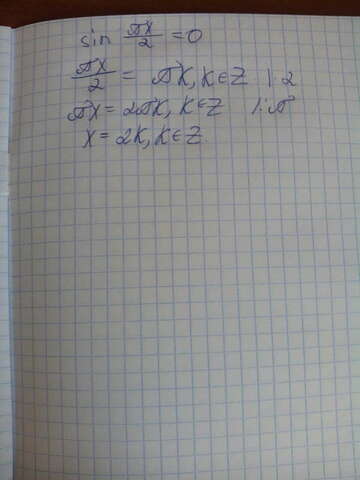 sin πx/2 = 0
πx/2 = πk, k∈Z | ·2
πx = 2πk, k∈Z | :π
x = 2k, k∈Z